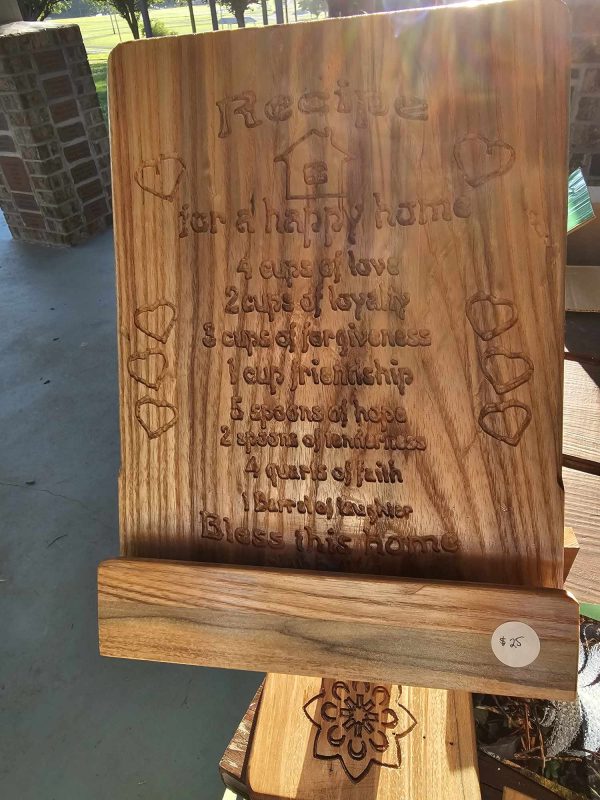 Recipe
for a happy home
4 cups of love
2 cups of loyalty
3 cups of forgiveness
1 cup friendship
5 spoons of hope
2 spoons of tenderness
4 quarts of faith
1 Barrel of laughter
Bless this home
$25